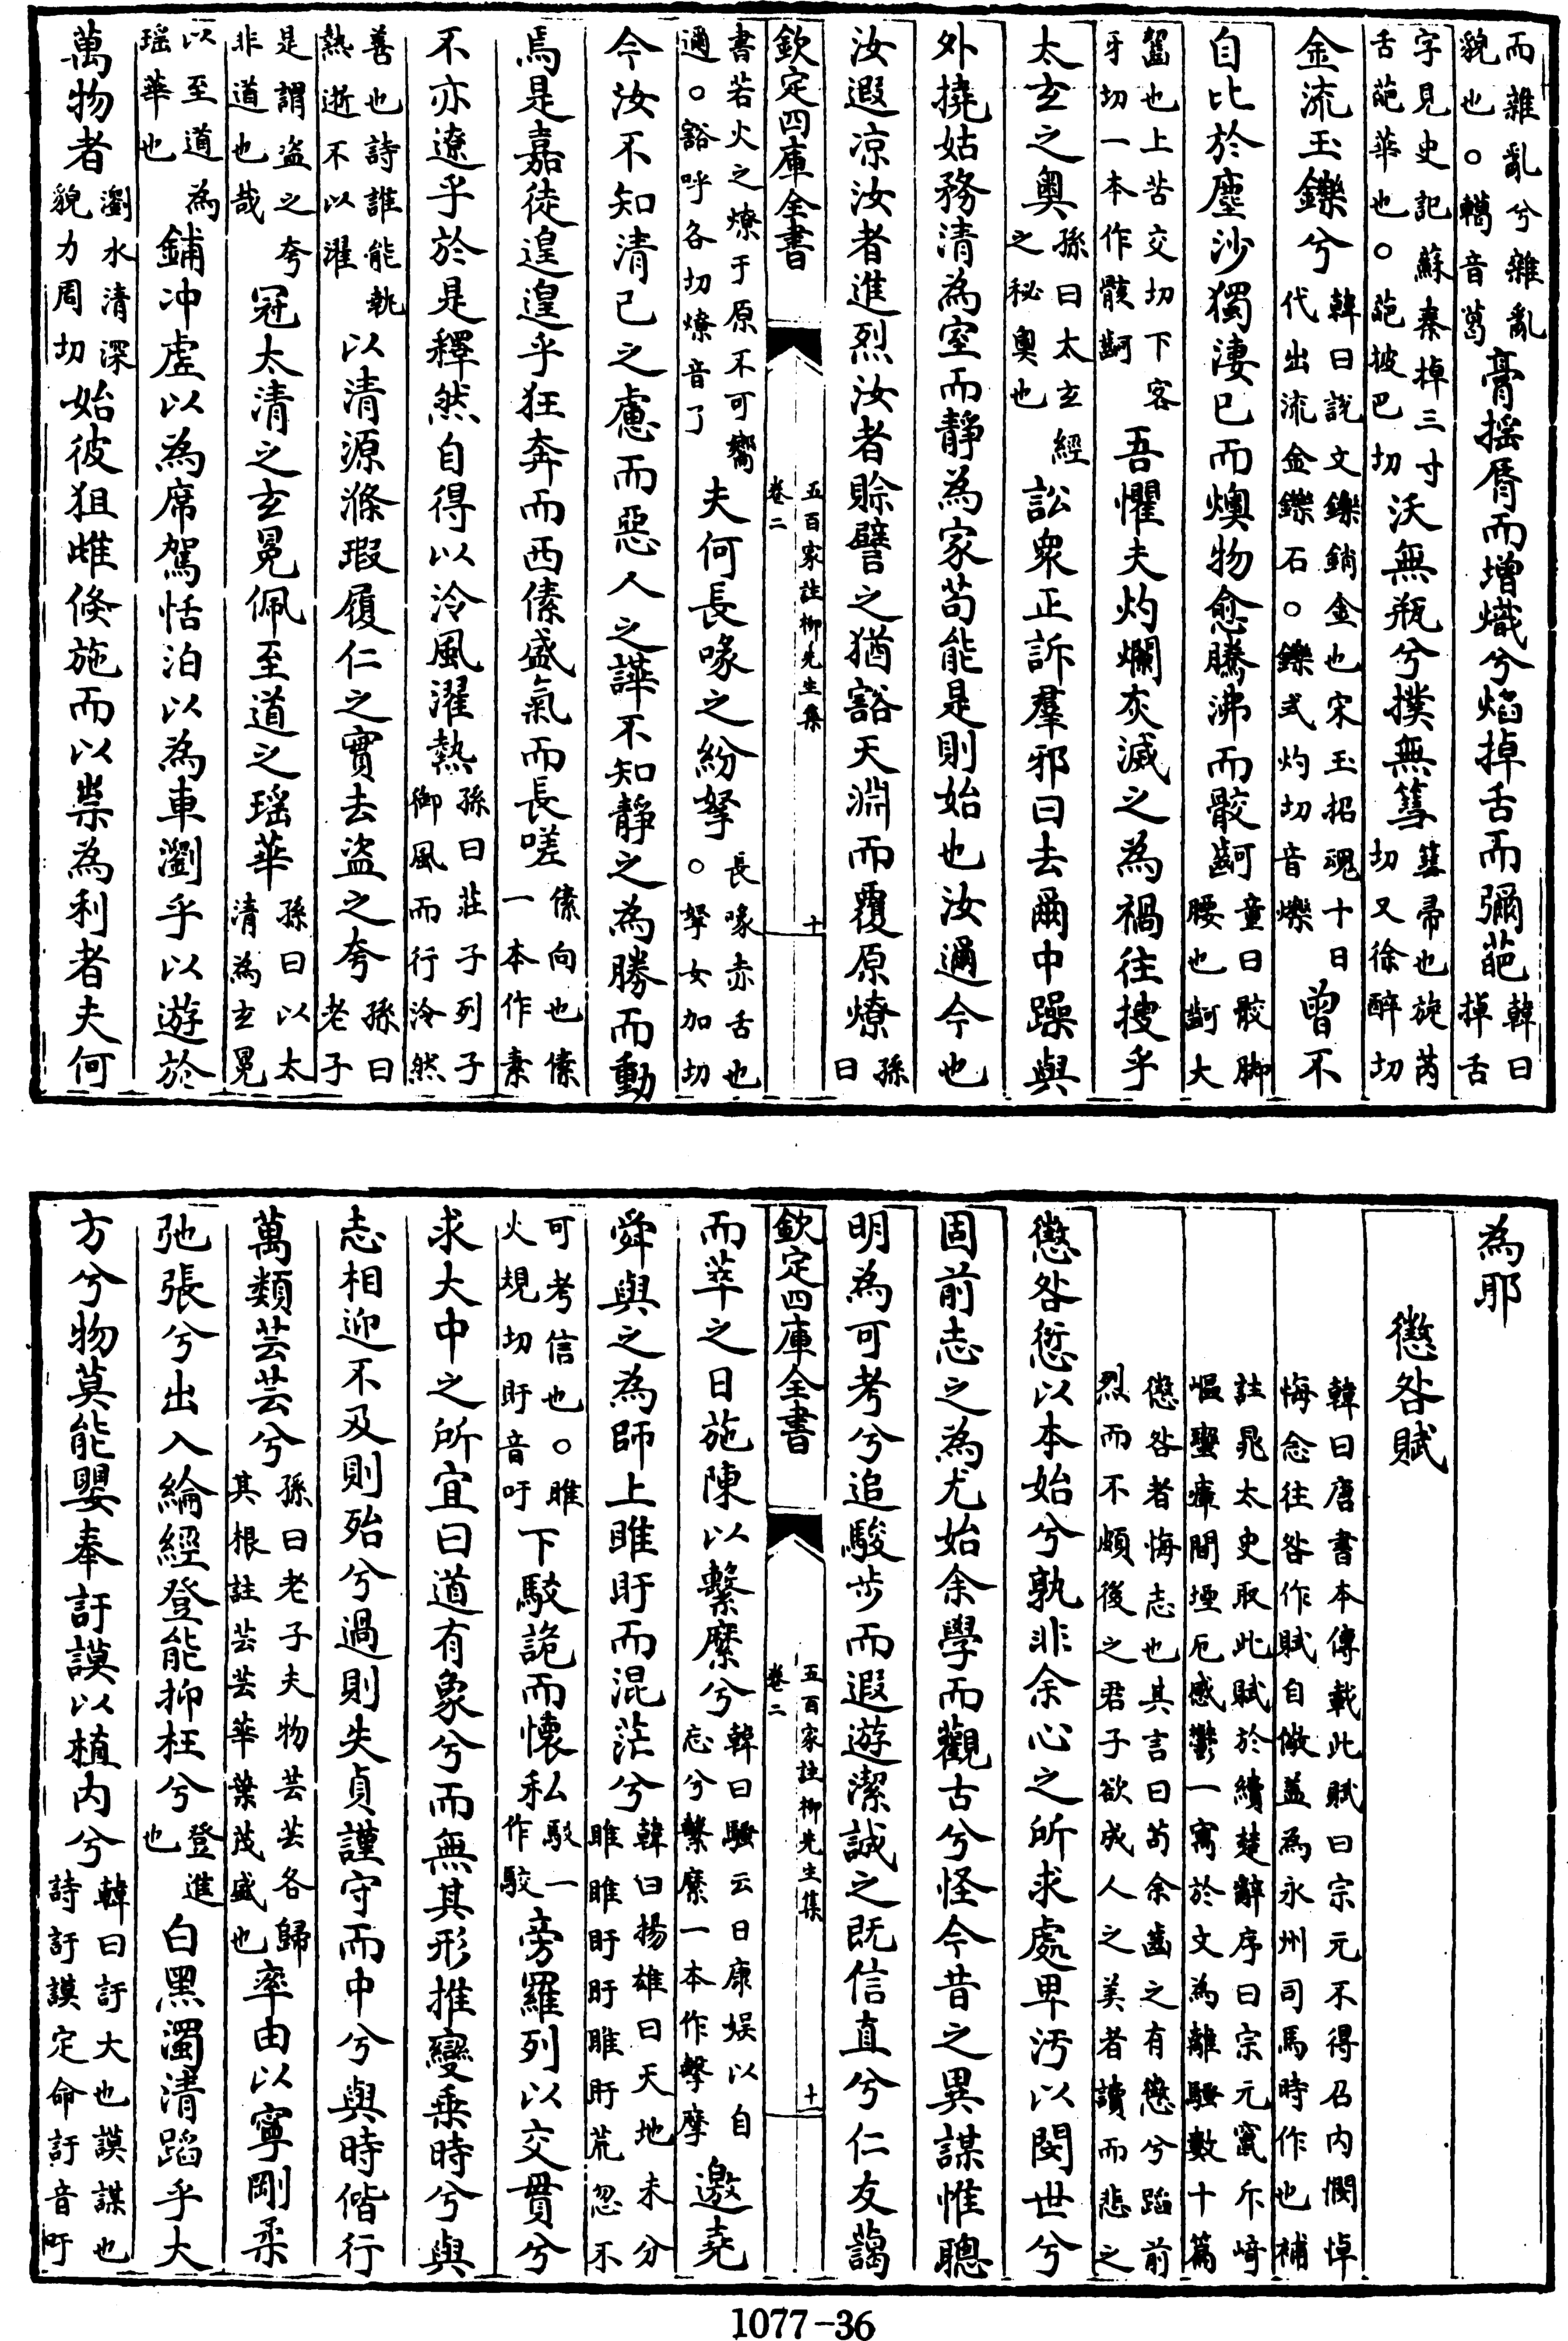 而雜亂兮雜亂
貌也○轕音葛
膏揺脣而增熾兮焰掉舌而彌葩
韓曰
掉舌
字見史記蘇秦掉三寸
舌葩華也○葩披巴切
沃無瓶兮撲無篲
篲帚也旋芮
切又徐醉切
金流玉鑠兮
韓曰說文鑠銷金也宋玉招魂十日
代出流金鑠石○鑠式灼切音爍
曾不
自比於塵沙獨淒已而燠物愈騰沸而骹齲
童曰骹脚
腰也齲大
齧也上苦交切下客
牙切一本作骸齲
吾懼夫灼爛灰滅之為禍往搜乎
太玄之奥
孫曰太玄經
之秘奥也
訟衆正訴羣邪曰去爾中躁與
外撓姑務清為室而靜為家苟能是則始也汝邇今也
汝遐凉汝者進烈汝者賒譬之猶豁天淵而覆原燎
孫
曰
欽定四庫全書
五百家註柳先生集
卷二
十
書若火之燎于原不可嚮
邇○豁呼各切燎音了
夫何長喙之紛拏
長喙赤舌也
○拏女加切
今汝不知清已之慮而惡人之譁不知靜之為勝而動
焉是嘉徒遑遑乎狂奔而西傃盛氣而長嗟
傃向也傃
一本作素
不亦遼乎於是釋然自得以泠風濯熱
孫曰莊子列子
御風而行泠然
善也詩誰能執
熱逝不以濯
以清源滌瑕履仁之實去盗之夸
孫曰
老子
是謂盗之夸
非道也哉
冠太清之玄冕佩至道之瑶華
孫曰以太
清為玄冕
以至道為
瑶華也
鋪冲虚以為席駕恬泊以為車瀏乎以遊於
萬物者
瀏水清深
貌力周切
始彼狙雌倏施而以祟為利者夫何
為耶
懲咎賦
韓曰唐書本傳載此賦曰宗元不得召内憫悼
悔念往咎作賦自儆盖為永州司馬時作也補
註晁太史取此賦於續楚辭序曰宗元竄斥崎
嶇蠻瘴間堙厄感鬱一寓於文為離騷數十篇
懲咎者悔志也其言曰苟余齒之有懲兮蹈前
烈而不頗後之君子欲成人之美者讀而悲之
懲咎愆以本始兮孰非余心之所求處卑汚以閔世兮
固前志之為尤始余學而觀古兮怪今昔之異謀惟聰
明為可考兮追駿步而遐遊潔誠之既信直兮仁友藹
欽定四庫全書
五百家註柳先生集
卷二
十
而萃之日施陳以繫縻兮
韓曰騷云日康娱以自
忘兮繫縻一本作擊摩
邀堯
舜與之為師上睢盱而混茫兮
韓曰揚雄曰天地未分
睢睢盱盱睢盱荒忽不
可考信也○睢
火規切盱音吁
下駁詭而懷私
駁一
作駮
旁羅列以交貫兮
求大中之所宜曰道有象兮而無其形推變乗時兮與
志相迎不及則殆兮過則失貞謹守而中兮與時偕行
萬類芸芸兮
孫曰老子夫物芸芸各歸
其根註芸芸華葉茂盛也
率由以寧剛柔
弛張兮出入綸經登能抑枉兮
登進
也
白黑濁清蹈乎大
方兮物莫能嬰奉訏謨以植内兮
韓曰訏大也謨謀也
詩訏謨定命訏音吁
1077-36